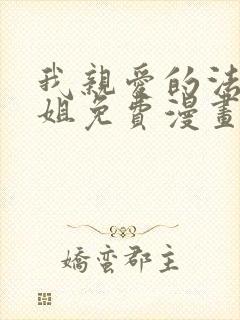 我親愛的法
姐免費漫畫
嬌蠻郡主